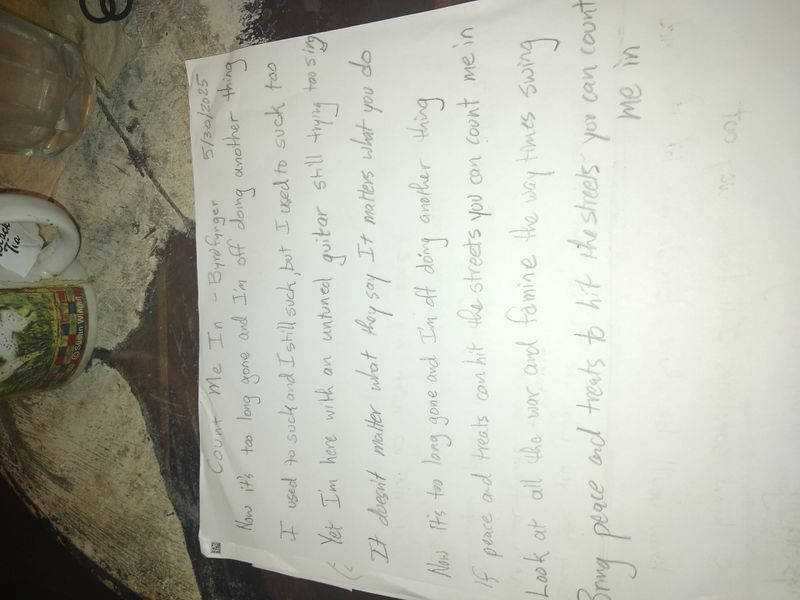 Count Me In - Byrdfynger 5/30/2025
Now it's too long gone and I'm off doing another thing
I used to suck and I still suck, but I used to suck too
Yet I'm here with an untuned guitar still trying to sing
It doesn't matter what they say It matters what you do
Now it's too long gone and I'm off doing another thing
If peace and treats can hit the streets you can count me in
Look at all the war and famine the way times swing
Bring peace and treats to hit the streets you can count
me in